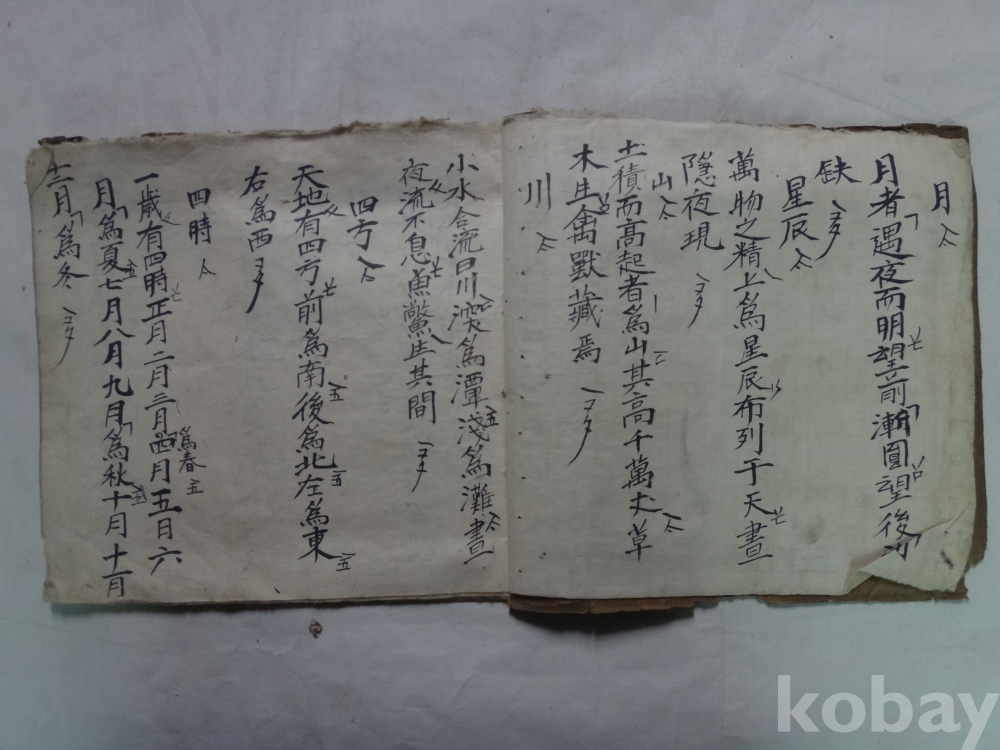 月
月者遇夜而明望前漸圓望後
缺
星辰
萬物之精上爲星辰布列于天晝
隱夜現
山
土積而高起者爲山其高千萬丈草
木生禽獸藏焉
川
小水合流曰川深爲潭淺爲灘晝
夜流不息魚鱉生其間
四方
天地有四方前爲南後爲北左爲東
右爲西
四時
一歲有四時正月二月三月爲春四月五日六
月爲夏七月八月九月爲秋十月十一月
十二月爲冬
kobay